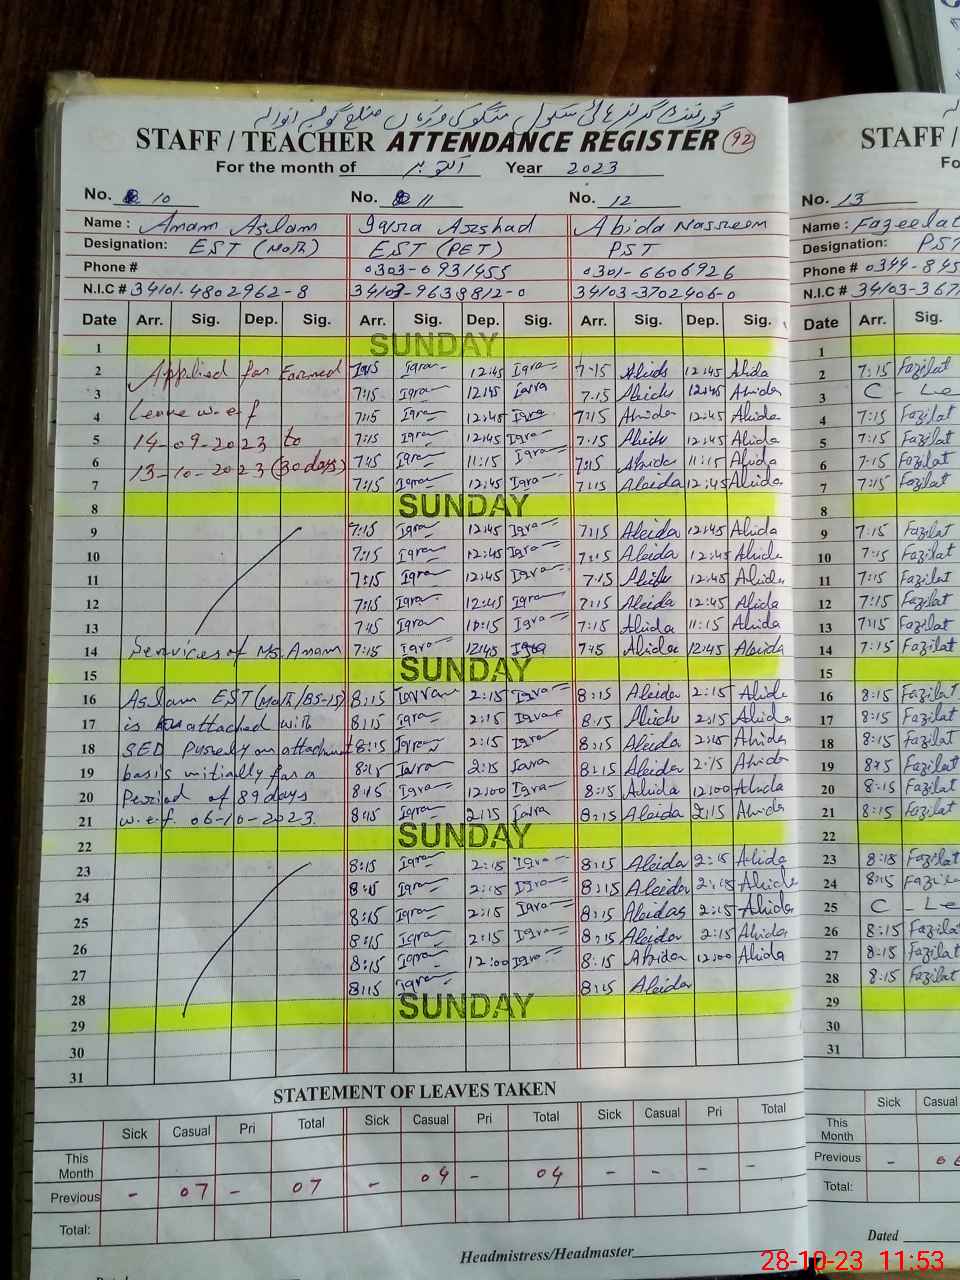 گورنمنٹ گرلز ہائی سکول
STAFF / TEACHER ATTENDANCE REGISTER 92
For the month of اکتوبر Year 2023
No. 10 No. 11 No. 12
Name : Anam Aslam Iqra Arshad Abida Nasreem
Designation: EST (Math) EST (PET) PST
Phone # 0303-0931455 0301-6606926
N.I.C # 34101-4802962-8 34103-9638812-0 34103-3702406-0
Date Arr. Sig. Dep. Sig. Arr. Sig. Dep. Sig. Arr. Sig. Dep. Sig.
1 SUNDAY
2 Applied for Earned 7:15 Iqra 12:45 Iqra 7:15 Abida 12:45 Abida
3 7:15 Iqra 12:45 Iqra 7:15 Abida 12:45 Abida
4 Leave w.e.f 7:15 Iqra 12:45 Iqra 7:15 Abida 12:45 Abida
5 14-09-2023 to 7:15 Iqra 12:45 Iqra 7:15 Abida 12:45 Abida
6 13-10-2023 (30 days) 7:15 Iqra 11:15 Iqra 7:15 Abida 11:15 Abida
7 7:15 Iqra 12:45 Iqra 7:15 Abida 12:45 Abida
8 SUNDAY
9 7:15 Iqra 12:45 Iqra 7:15 Abida 12:45 Abida
10 7:15 Iqra 12:45 Iqra 7:15 Abida 12:45 Abida
11 7:15 Iqra 12:45 Iqra 7:15 Abida 12:45 Abida
12 7:15 Iqra 12:45 Iqra 7:15 Abida 12:45 Abida
13 7:15 Iqra Iqra 7:15 Abida 11:15 Abida
14 Services of Ms. Anam 7:15 Iqra 12:45 Iqra 7:15 Abida 12:45 Abida
15 SUNDAY
16 Aslam EST (Math/BS-15) 8:15 Iqra 2:15 Iqra 8:15 Abida 2:15 Abida
17 is attached with 8:15 Iqra 2:15 Iqra 8:15 Abida 2:15 Abida
18 SED Purely on attachment 8:15 Iqra 2:15 Iqra 8:15 Abida 2:15 Abida
19 basis initially for a 8:15 Iqra 2:15 Iqra 8:15 Abida 2:15 Abida
20 Period of 89 days 8:15 Iqra 12:00 Iqra 8:15 Abida 12:00 Abida
21 w.e.f. 06-10-2023. 8:15 Iqra 2:15 Iqra 8:15 Abida 2:15 Abida
22 SUNDAY
23 8:15 Iqra 2:15 Iqra 8:15 Abida 2:15 Abida
24 8:15 Iqra 2:15 Iqra 8:15 Abida 2:15 Abida
25 8:15 Iqra 2:15 Iqra 8:15 Abida 2:15 Abida
26 8:15 Iqra 2:15 Iqra 8:15 Abida 2:15 Abida
27 8:15 Iqra 12:00 Iqra 8:15 Abida 12:00 Abida
28 8:15 Iqra 8:15 Abida
29 SUNDAY
30
31
STATEMENT OF LEAVES TAKEN
Sick Casual Pri Total Sick Casual Pri Total Sick Casual Pri Total
This Month
Previous - 07 - 07 - 04 - 04 - - - -
Total:
Headmistress/Headmaster
STAFF /
No. 13
Name : Fazeelat
Designation: PST
Phone # 0344-845
N.I.C # 34103-367
Date Arr. Sig.
1
2 7:15 Fazilat
3 C - Le
4 7:15 Fazilat
5 7:15 Fazilat
6 7:15 Fazilat
7 7:15 Fazilat
8
9 7:15 Fazilat
10 7:15 Fazilat
11 7:15 Fazilat
12 7:15 Fazilat
13 7:15 Fazilat
14 7:15 Fazilat
15
16 8:15 Fazilat
17 8:15 Fazilat
18 8:15 Fazilat
19 8:15 Fazilat
20 8:15 Fazilat
21 8:15 Fazilat
22
23 8:15 Fazilat
24 8:15 Fazila
25 C - Le
26 8:15 Fazilat
27 8:15 Fazilat
28 8:15 Fazilat
29
30
31
Sick Casual
This Month
Previous -
Total:
Dated
28-10-23 11:53